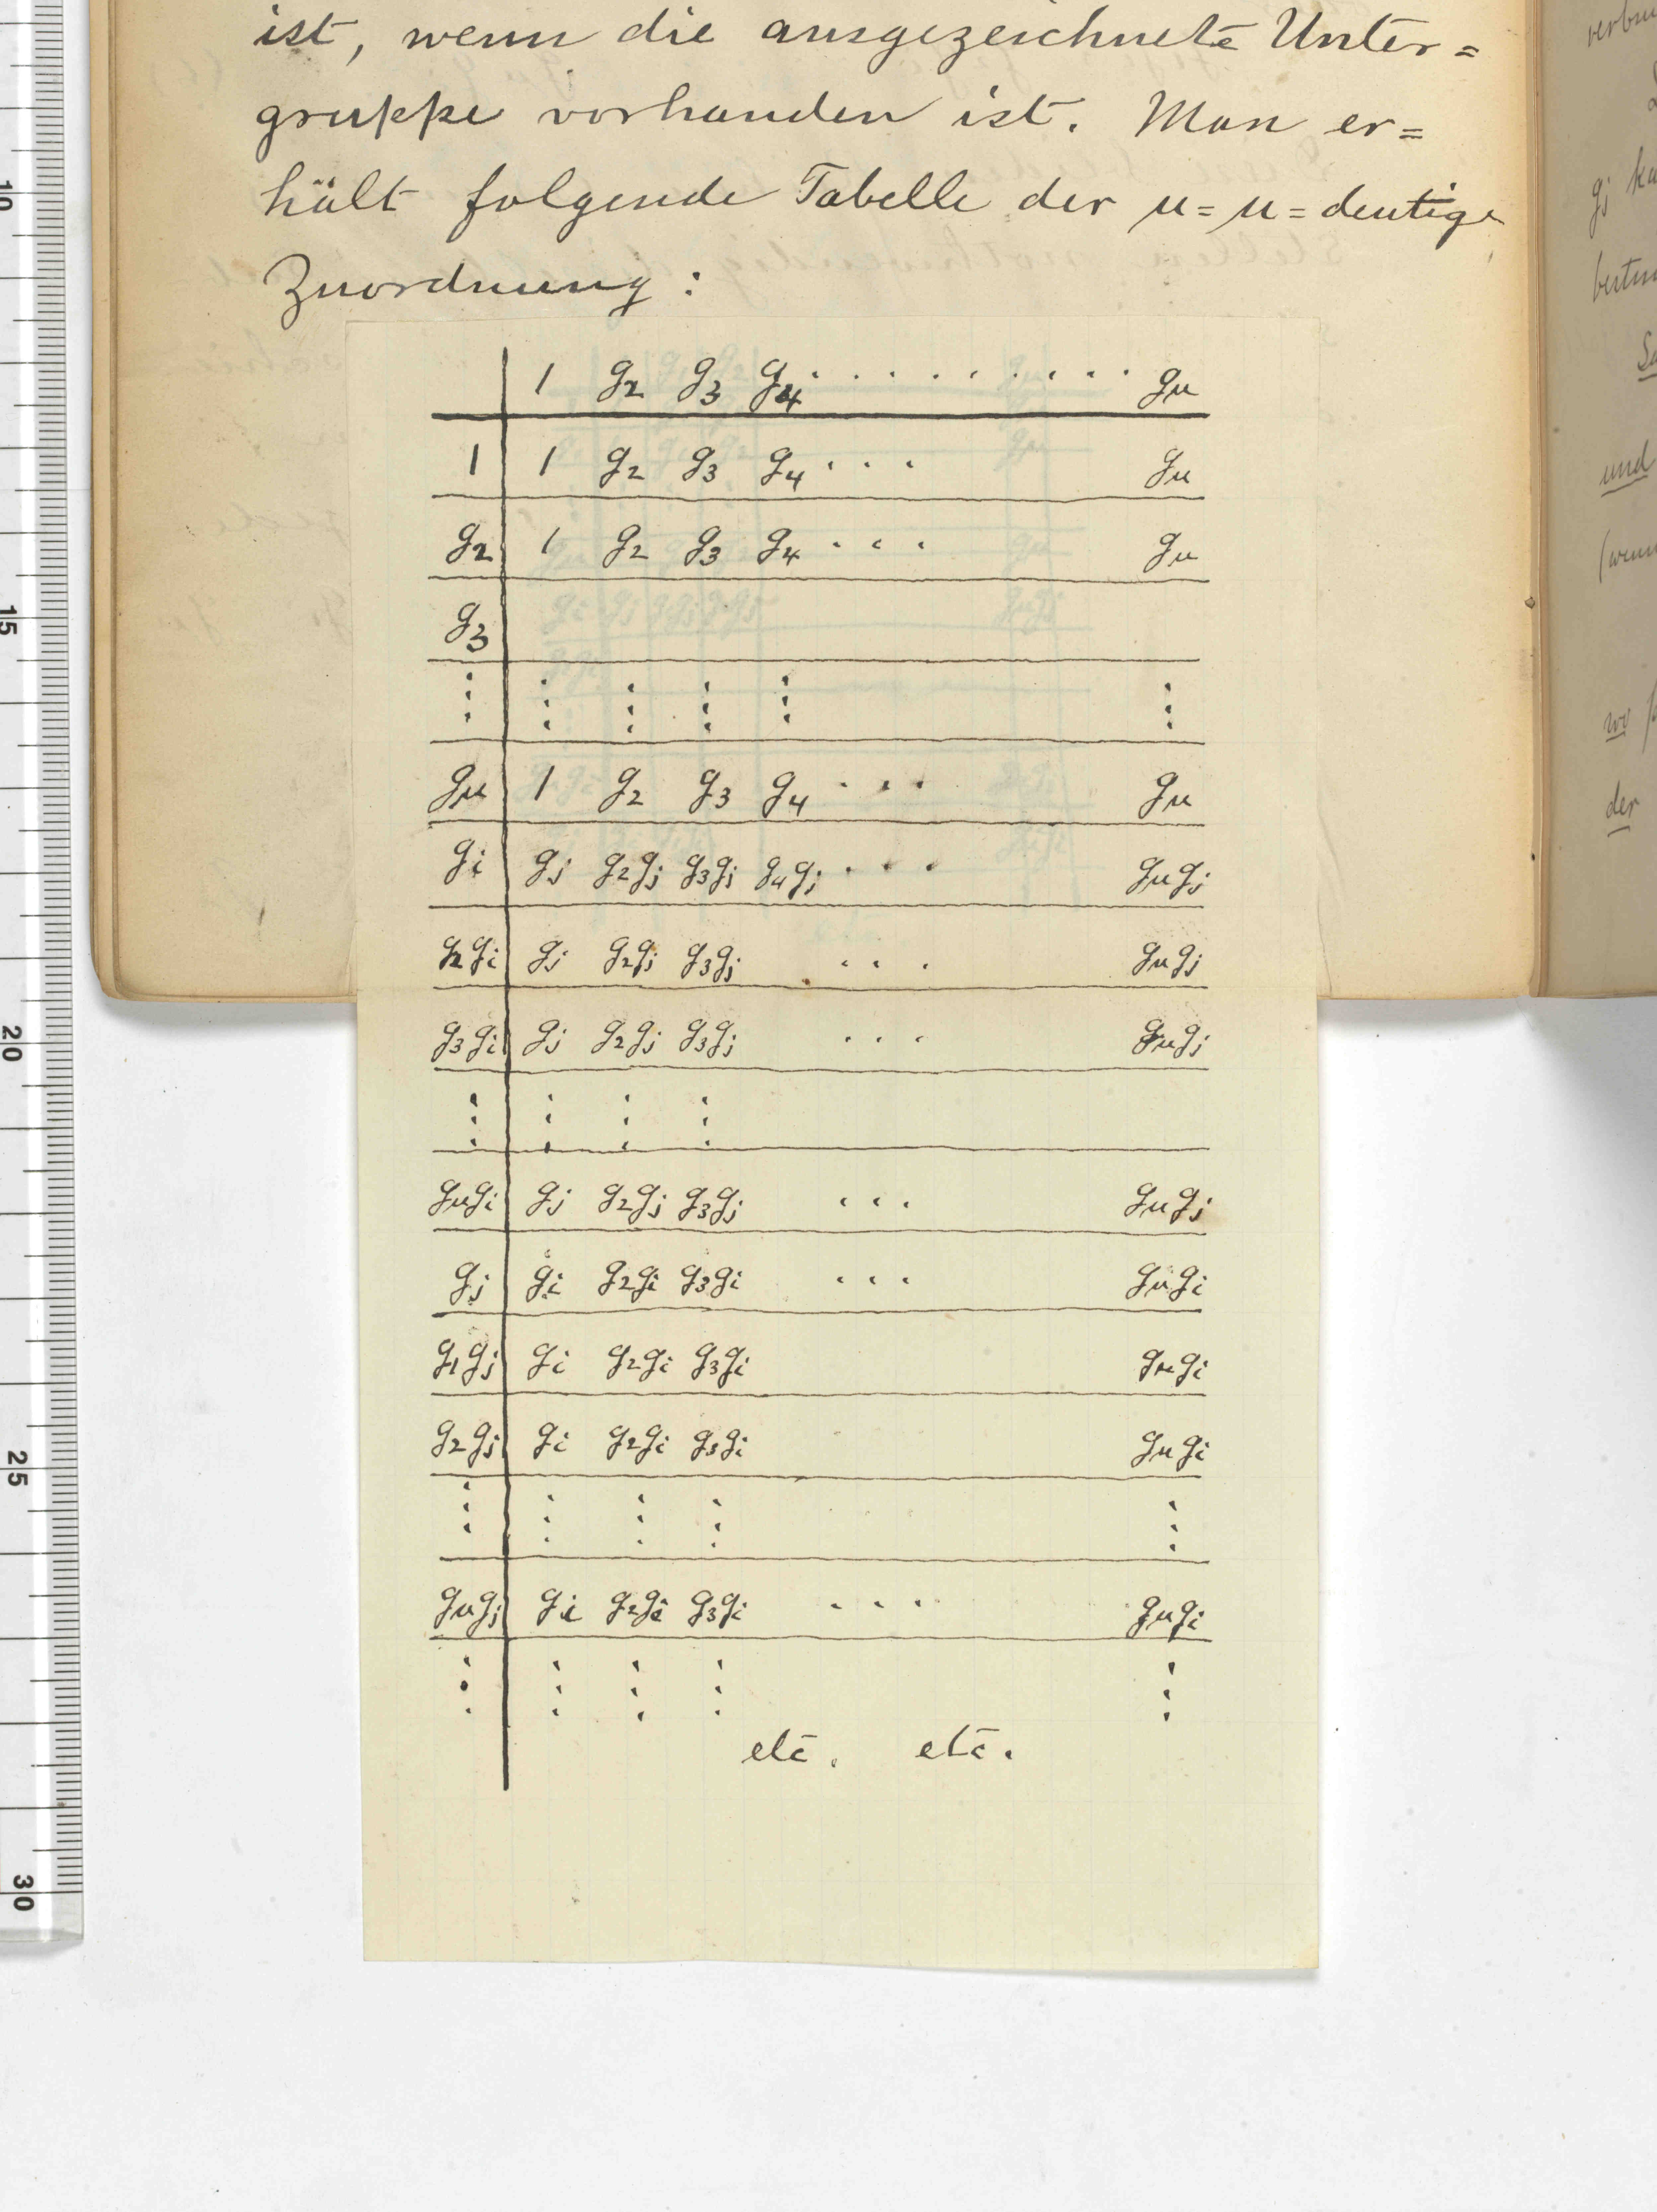 ist, wenn die ausgezeichnete Unter=
gruppe vorhanden ist. Man er=
hält folgende Tabelle der μ=μ=deutige
Zuordnung:
1 g2 g3 g4 . . . . . . . . . gμ
1 1 g2 g3 g4 . . . gμ
g2 1 g2 g3 g4 . . . gμ
g3
⋮ ⋮ ⋮ ⋮ ⋮ ⋮
gμ 1 g2 g3 g4 . . . gμ
gi gj g2gj g3gj g4gj . . . gμgj
g2gi gj g2gj g3gj . . . gμgj
g3gi gj g2gj g3gj . . . gμgj
⋮ ⋮ ⋮ ⋮
gμgi gj g2gj g3gj . . . gμgj
gj gi g2gi g3gi . . . gμgi
g1gj gi g2gi g3gi gμgi
g2gj gi g2gi g3gi gμgi
⋮ ⋮ ⋮ ⋮ ⋮
gμgj gi g2gi g3gi . . . gμgi
⋮ ⋮ ⋮ ⋮ ⋮
etc. etc.
10
15
20
25
30
gj
und
der